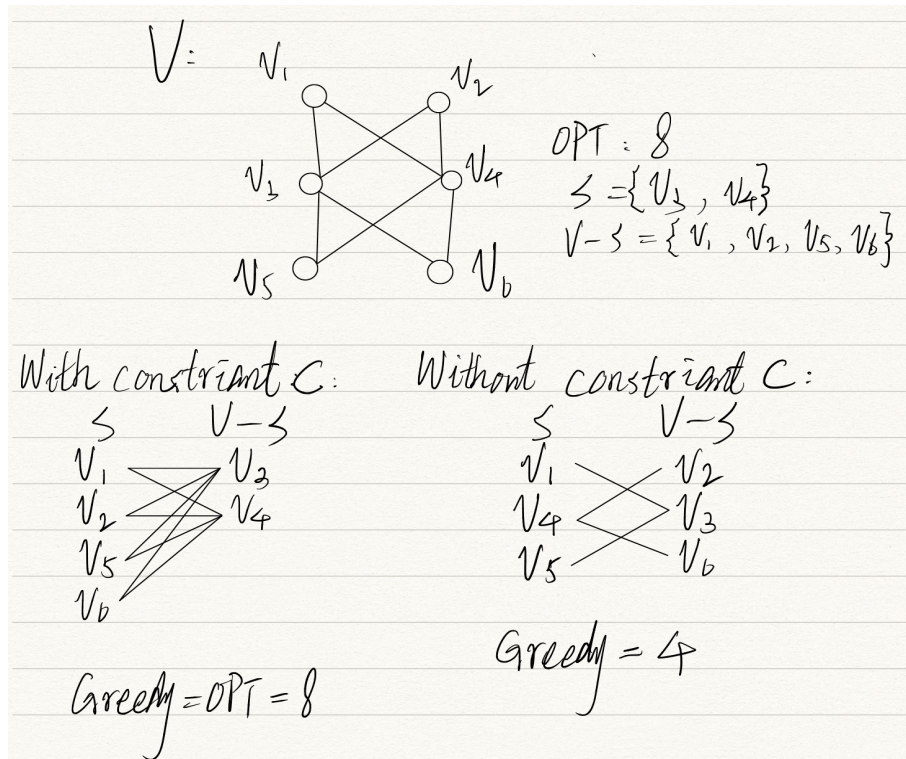 V:
V1 V2
V3 V4
V5 V6
OPT: 8
S = {V3, V4}
V-S = {V1, V2, V5, V6}
With constriant C:
S V-S
V1 V3
V2 V4
V5
V6
Greedy = OPT = 8
Without constriant C:
S V-S
V1 V2
V4 V3
V5 V6
Greedy = 4